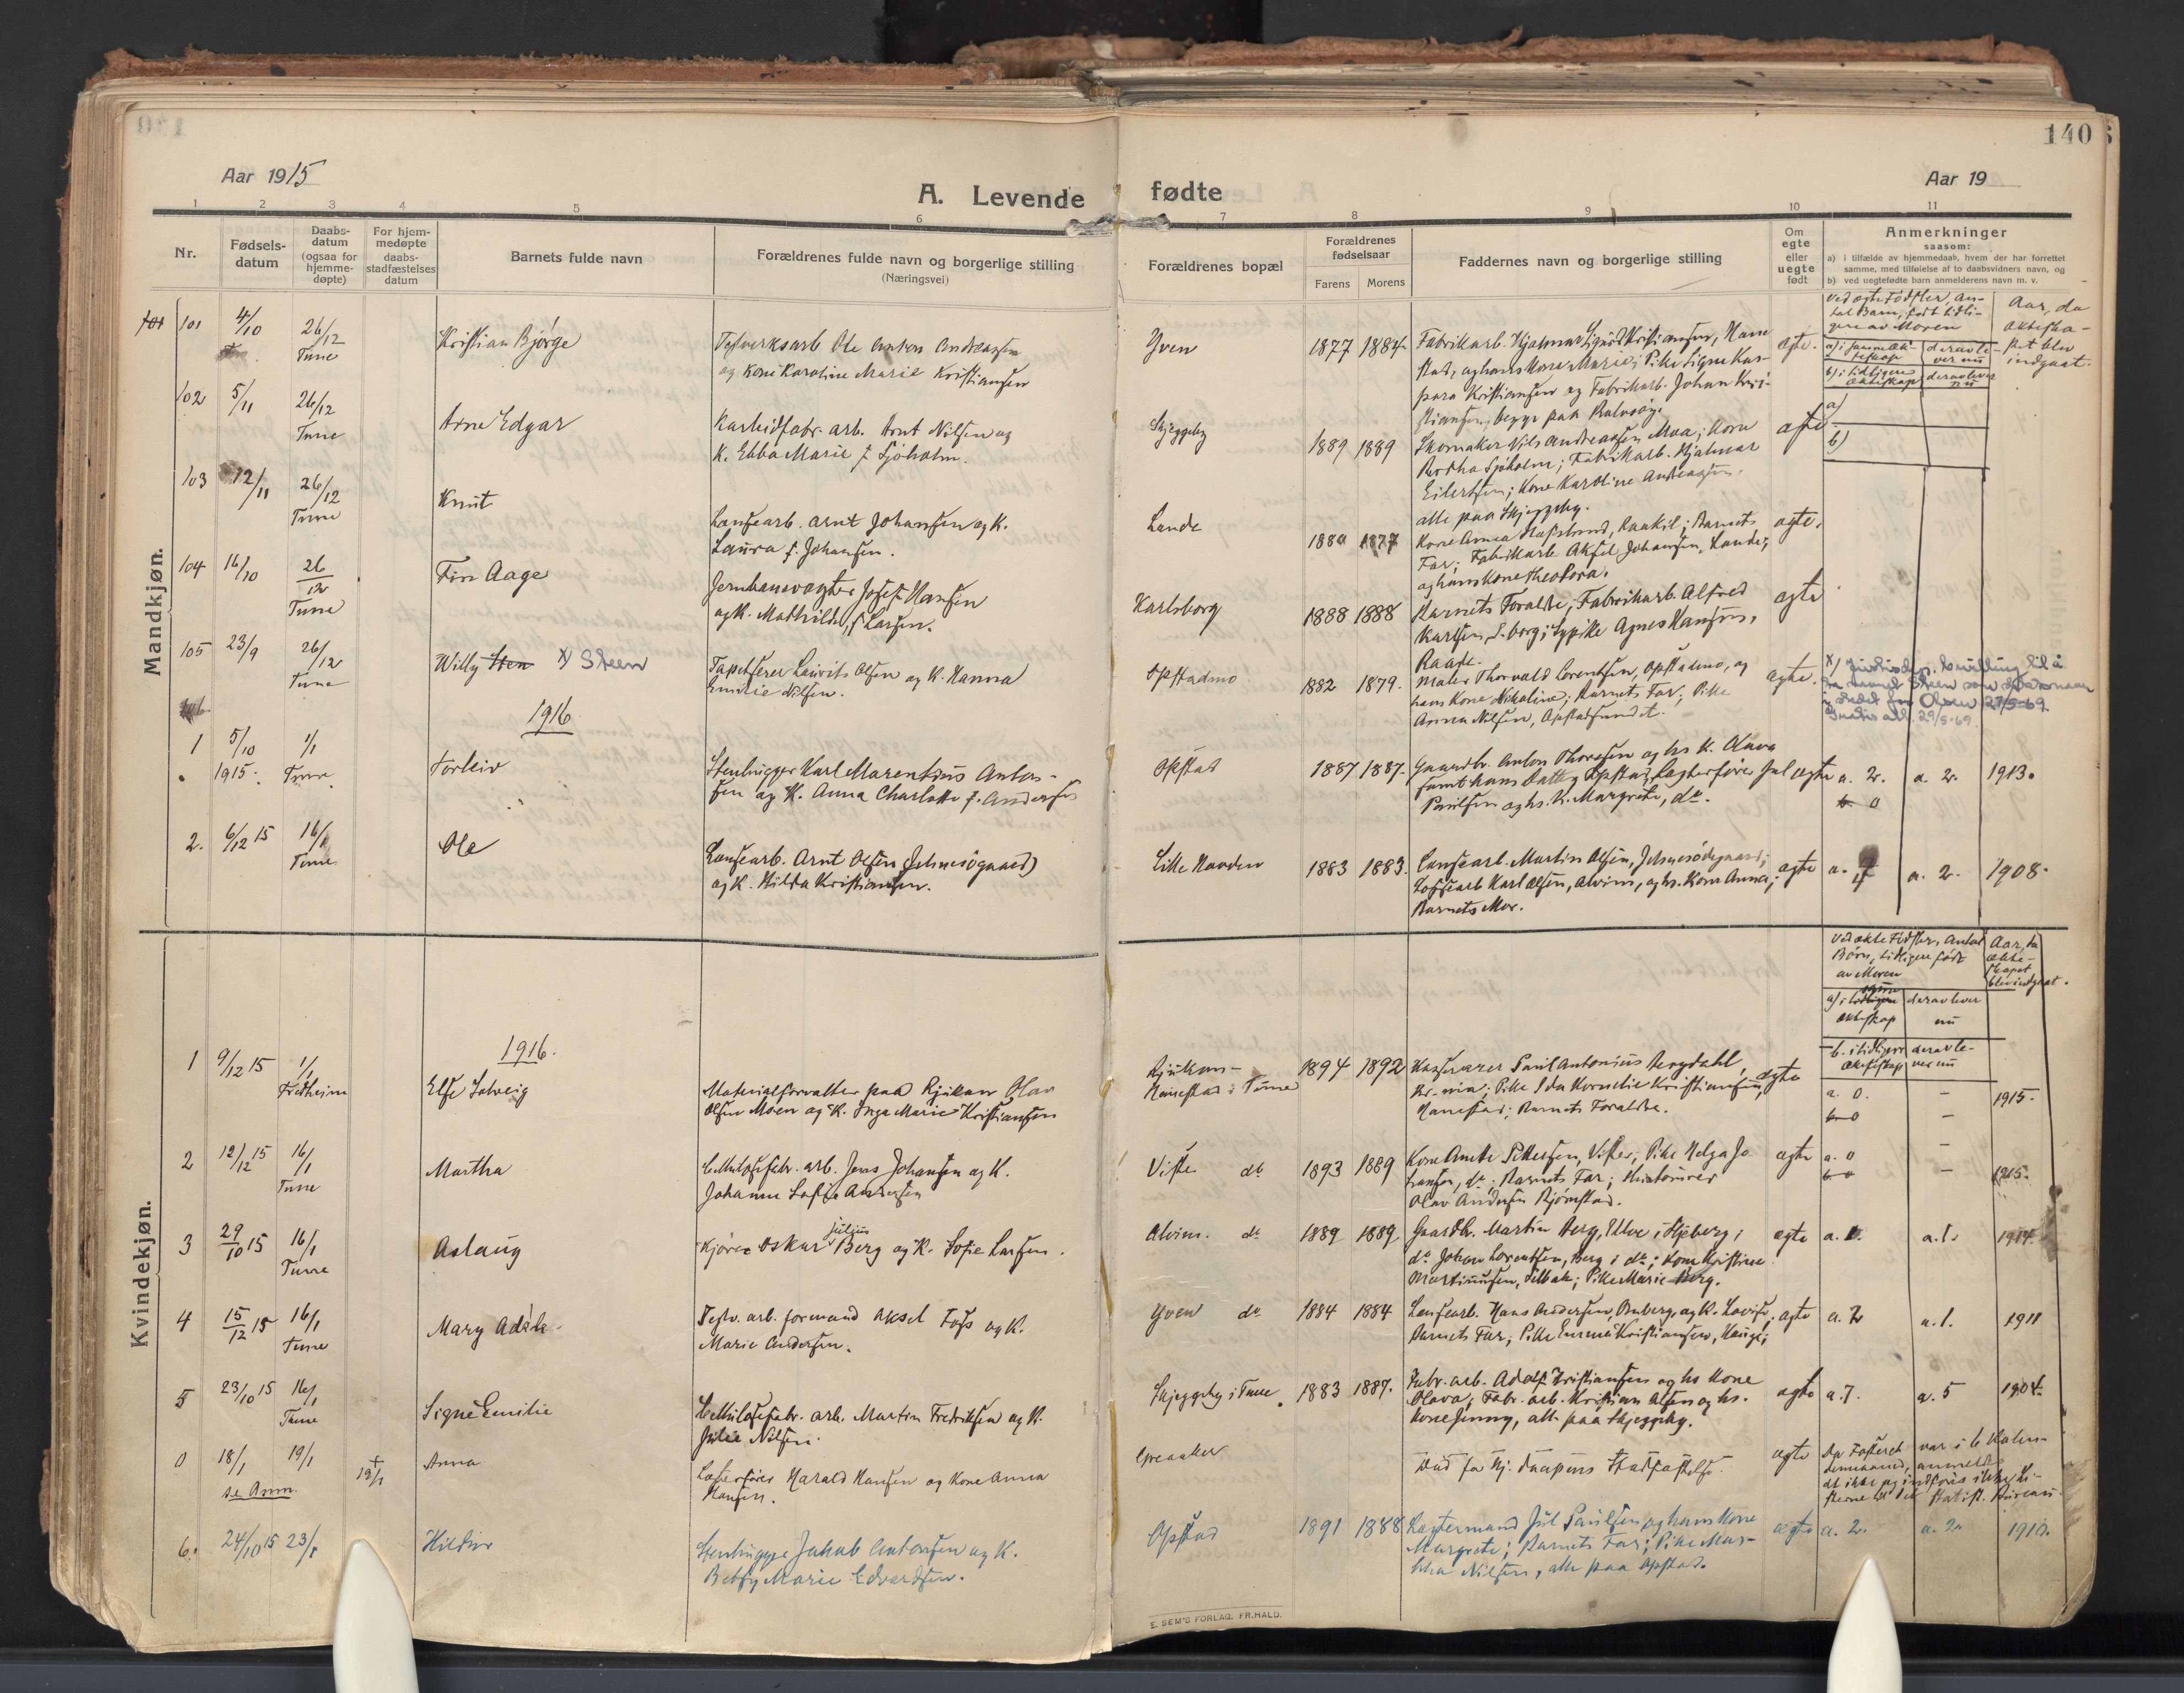 140
Aar 1915
A. Levende fødte
Aar 19
1 2 3 4 5 6 7 8 9 10 11
Nr.
Fødsels-
datum
Daabs-
datum
(ogsaa for
hjemme-
døpte)
For hjem-
medøpte
daabs-
stadfæstelses
datum
Barnets fulde navn
Forældrenes fulde navn og borgerlige stilling
(Næringsvei)
Forældrenes bopæl
Forældrenes
fødselsaar
Farens Morens
Faddernes navn og borgerlige stilling
Om
egte
eller
uegte
født
Anmerkninger
saasom:
a) i tilfælde av hjemmedaab, hvem der har forrettet
samme, med tilføielse af to daabsvidners navn, og
b) ved uegtefødte barn anmelderens navn m. v.
Mandkjøn.
Ved ægte Fødsler, an-
tal Barn, født tidli-
gere av Moren
Aar, da
ekteska-
pet blev
indgaat.
101 4/10 26/12 Tune
Kristian Bjørge
Teglverksarb Ole Anton Andreassen
og Kone Karoline Marie Kristiansen
Yven 1877 1884
Fabrikarb. Hjalmar Sigurd Kristiansen, Hanne
stad, og hans Kone Marie; Pike Signe Kas-
para Kristiansen og Fabrikarb. Johan Kri-
stiansen, begge paa Rolvsøy.
egte.
102 5/11 26/12 Tune
Arne Edgar
Karbidfabr. arb. Arnt Nilsen og
K. Ebba Marie f. Sjøholm.
Skjeggeby 1889 1889
Skomaker Nils Andreassen Moa; Kone
Bertha Sjøholm; Fabrikarb. Hjalmar
Eilertsen; Kone Karoline Andreassen,
alle paa Skjeggeby.
egte
a)
b)
103 12/11 26/12 Tune
Knut
Lensearb. Arnt Johansen og K.
Laura f. Johansen.
Lande 1880 1877
Kone Anna Hafslund, Raakil; Barnets
Far; Fabrikarb Aksel Johansen, Lande;
og hans Kone Theodora.
egte.
104 16/10 26/12 Tune
Fin Aage
Jernbanevogter Josef Hansen
og K. Mathilde f. Larsen.
Karlsborg 1888 1888
Barnets Forældre; Fabrikarb. Alfred
Karlsen, S-borg; Sypike Agnes Hansen,
Raade.
egte
105 23/9 26/12 Tune
Willy Sten x) Steen
Tapetserer Laurits Olsen og K. Hanna
Emilie Nilsen.
Opstadmo 1882 1879.
Maler Thorvald Lorentsen, Opstadmo, og
hans Kone Nikoline; Barnets Far; Pike
Anna Nilsen, Opstadsundet.
egte.
x) Justisdep. bevilling til å
ta navnet Steen som slektsnavn
i stedet for Olsen 27/5-69.
29/5-69
1916
1 5/10 1915. 1/1 Tune
Torleiv
Stenhugger Karl Marentius Anton-
sen og K. Anna Charlotte f. Andersen
Opstad 1887 1887.
Gaardbr. Anton Thoresen og hs K. Olava
samt hans Datter Opstad, Lægterfører Jul
Paulsen og hs. K. Margrete, do.
egte a. 2. a. 2. 1913.
b. 0
2. 6/12 15 16/1 Tune
Ole
Lensearb. Arnt Olsen
og K. Hilda Kristiansen.
Lille Navden 1883 1883.
Lensearb. Martin Olsen,
Lossearb Karl Olsen, Alvim, og hs. Kone Anna;
Barnets Mor.
egte a. 4 a. 2. 1908.
Kvindekjøn.
Ved ekte Fødsler, Antal
Børn, tidligere født
av Moren
Aar, da
ekte-
skapet
blev indgaat.
a) i samme ekteskap derav lever nu
b. i tidligere ekteskap derav le-
ver nu
1916.
1 9/12 15 1/1 Fredheim
Else Solveig
Materialforvalter paa Rjukan Olav
Olsen Moen og K. Inga Marie Kristiansen
Rjukan-
Hannestad i Tune 1894 1892
Kasserer Paul Antonius Bergdahl,
Kr-nia; Pike Ida Kornelie Kristiansen,
Hannestad; Barnets Forældre.
egte
a. 0. - 1915.
b. 0 -
2 12/12 15 16/1 Tune
Martha
Cellulosefabr. arb. Jens Johansen og K.
Johanne Sofie Andersen
Viste do 1893 1889
Kone Anette Pettersen, Viste; Pike Helga Jo
hansen, do; Barnets Far;
Olav Andersen Bjørnstad.
egte a. 0 -
b. 0 - 1915.
3 29/10 15 16/1 Tune
Aslaug
Kjører Oskar Julius Berg og K. Sofie Larsen.
Alvim. do 1889 1889
Gaardbr. Martin Berg, Ulve i Skjeberg;
do Johan Lorentsen, Berg i do; Kone Kristine
Martinusen, Silbak; Pike Marie Berg.
egte a. 1. a. 1. 1914.
4 15/12 15 16/1 Tune
Mary Adele
Teglv. arb. formand Aksel Foss og K.
Marie Andersen.
Yven do 1884 1884
Lensearb. Hans Andersen, Bøberg, og K. Lovise;
Barnets Far; Pike Emma Kristiansen, Hauge;
egte a. 2 a. 1. 1911
5 23/10 15 16/1 Tune
Signe Emilie
Cellulosefabr. arb. Martin Fredriksen og K.
Julie Nilsen.
Skjeggeby i Tune. 1883 1887.
Fabr. arb. Adolf Kristiansen og hs Kone
Olava; Fabr. arb. Kristian Olsen og hs.
Kone Jenny, alle paa Skjeggeby.
egte a. 7. a. 5 1904.
0 18/1 19/1 + 19/1
se Anm.
Anna
Lægterfører Harald Hansen og Kone Anna
Hansen.
Greaaker
Død før Hj. daapens Stadfæstelse.
egte
Da Fosteret var i 6 Kalen-
dermaaned, anmeldes
det ikke og indføres ikke Li-
sterne til det statist. Bureau.
6. 24/10 15 23/1
Hildur
Stenhugger Jakob Antonsen og K.
Betsy Marie Edvardsen.
Opstad 1891 1888
Lægtermand Jul Paulsen og hans Kone
Margrete; Barnets Far; Pike Mar-
tha Nilsen, alle paa Opstad.
egte a. 2. a. 2. 1910.
E. SEM'S FORLAG, FR.HALD.